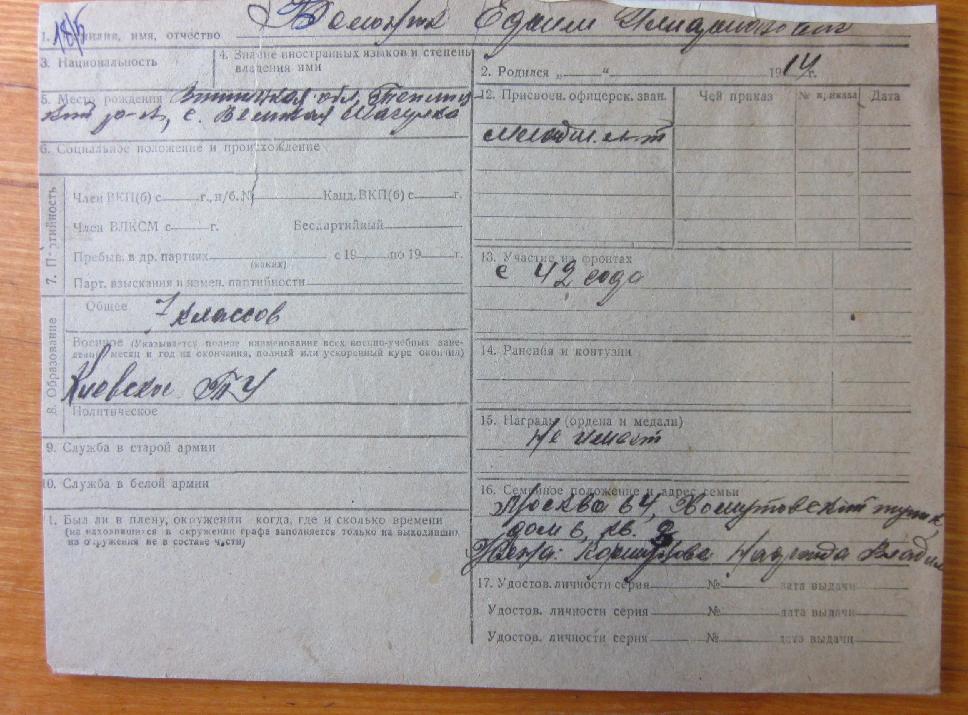 18/5
1. Фамилия, имя, отчество
3. Национальность
4. Знание иностранных языков и степень
владения ими
2. Родился „ “ 1914 г.
5. Место рождения обл,
кий р-н, с. Великая
12. Присвоен. офицерск. зван. Чей приказ № приказа Дата
младш. л-т
6. Социальное положение и происхождение
7. Партийность
Член ВКП(б) с г., п/б. № Канд. ВКП(б) с г.
Член ВЛКСМ с г. Беспартийный
Пребыв. в др. партиях с 19 по 19 г.
(каких)
Парт. взыскания и измен. партийности
13. Участие на фронтах
с 42 года
8. Образование
Общее 7 классов
Военное (Указывается полное наименование всех военно-учебных заве-
дений, месяц и год их окончания, полный или ускоренный курс окончил)
Киевское ТУ
Политическое
14. Ранения и контузии
15. Награды (ордена и медали)
Не имеет
9. Служба в старой армии
10. Служба в белой армии
11. Был ли в плену, окружении когда, где и сколько времени
(на находившихся в окружении графа заполняется только на выходивших
из окружения не в составе части)
16. Семейное положение и адрес семьи
Москва 64, Хомутовский тупик
дом 6, кв.
Жена:
17. Удостов. личности серия № дата выдачи
Удостов. личности серия № дата выдачи
Удостов. личности серия № дата выдачи